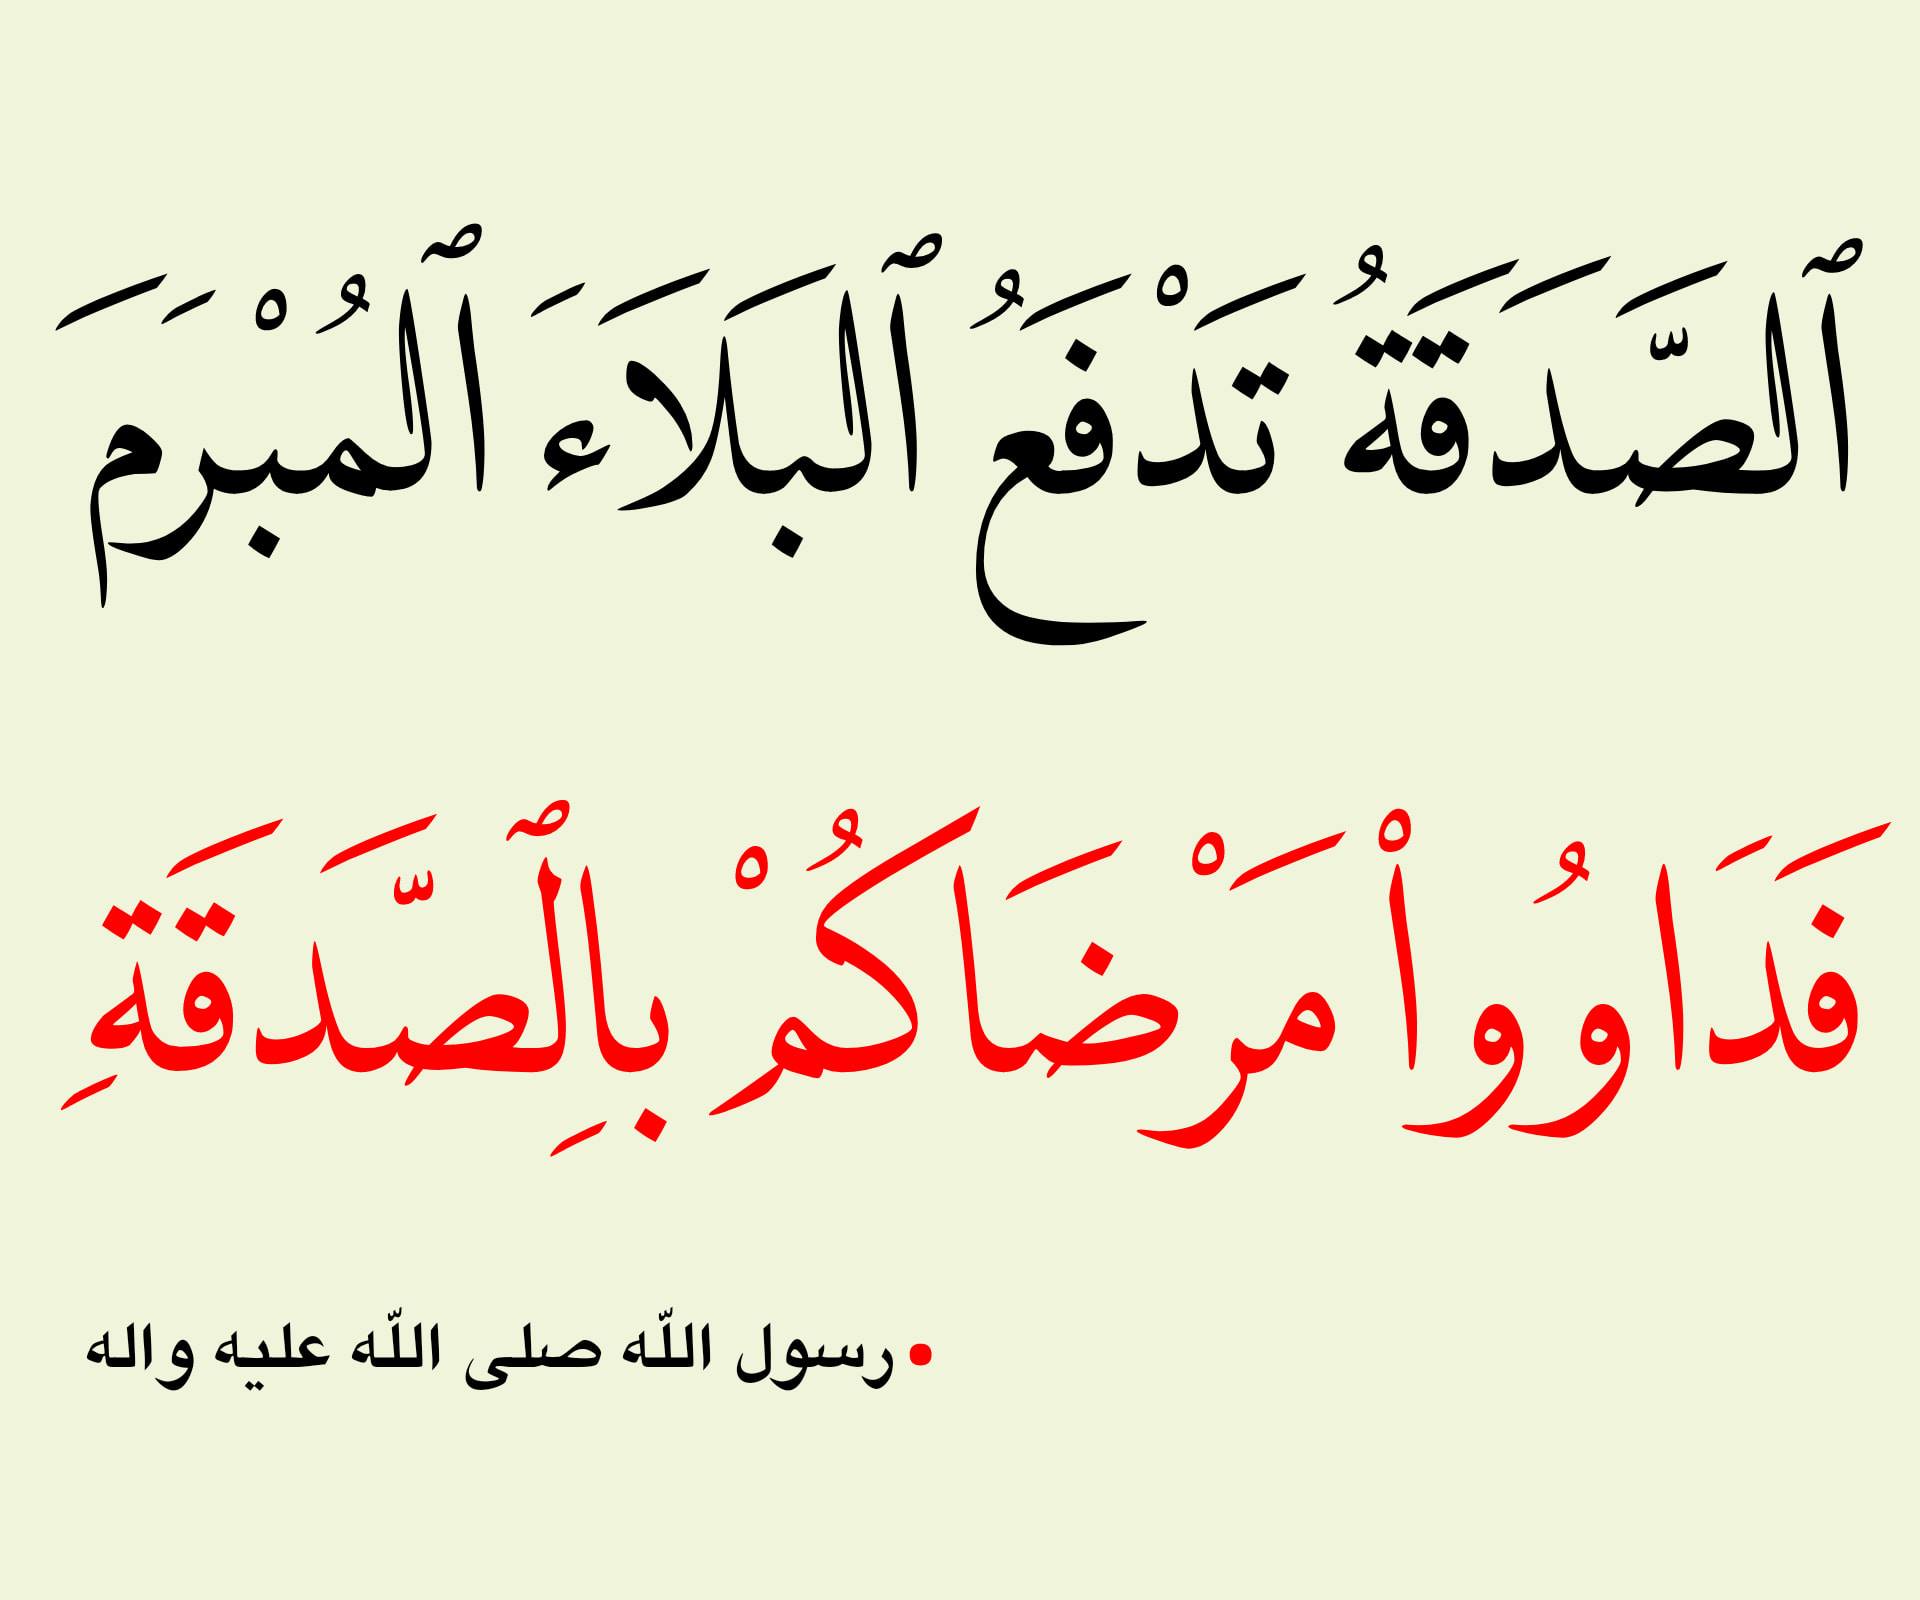 ٱلصَّدَقَةُ تَدْفَعُ ٱلبَلَاءَ ٱلمُبْرَمَ
فَدَاوُواْ مَرْضَاكُمْ بِٱلصَّدَقَةِ
• رسول اللّه صلى اللّه عليه واله